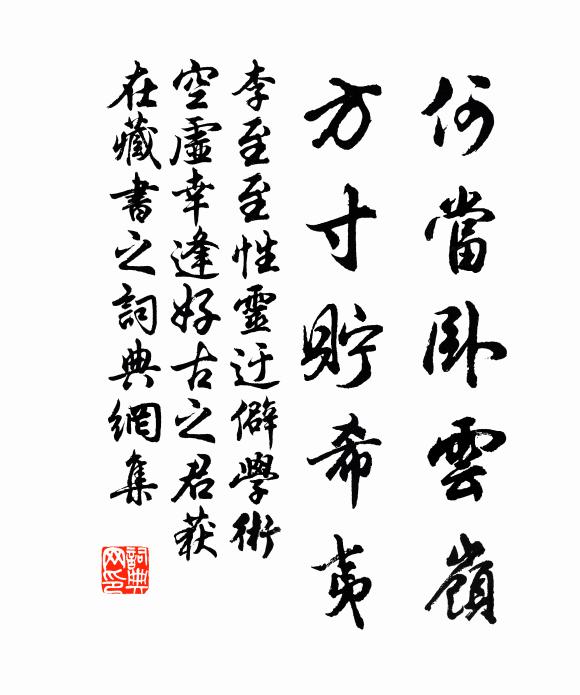 何當臥雲嶺
方寸貯希夷
李至至性靈迂僻學術
空虛幸逢好古之君获
在藏書之詞典網集
詞典网印